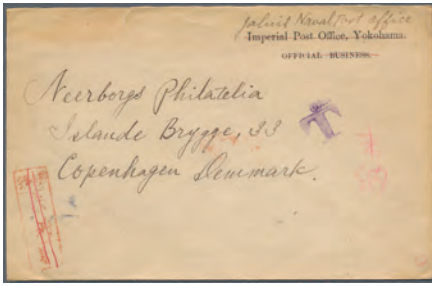 Jaluit Naval Post Office
Imperial Post Office, Yokohama.
OFFICIAL BUSINESS.
Neerborgs Philatelia
Islande Brygge, 33
Copenhagen Denmark.
T